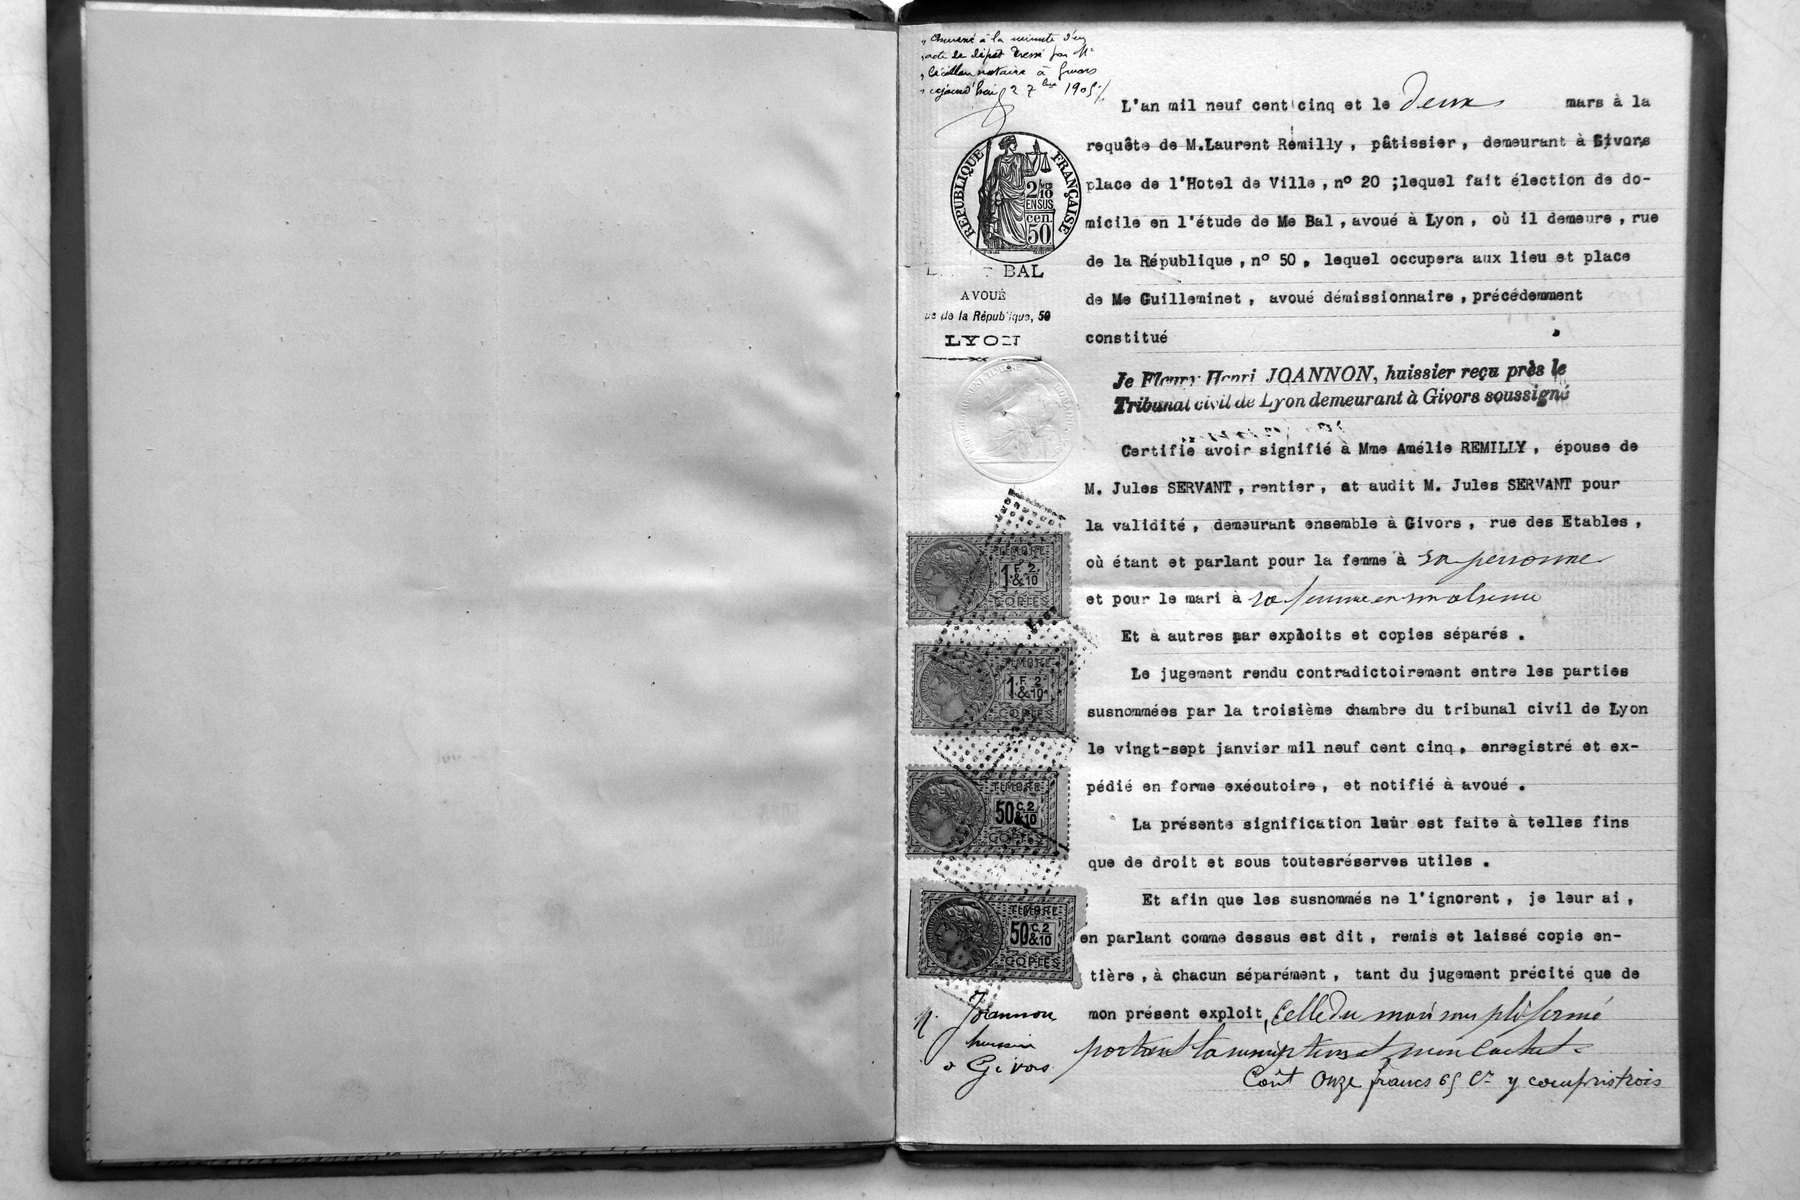 Annexé à la minute d'un
acte de dépôt dressé par Me
notaire à Givors
aujourd'hui 2 7bre 1905
RÉPUBLIQUE FRANÇAISE
2/10
EN SUS
cen.
50
BAL
AVOUÉ
de la République, 50
LYON
L'an mil neuf cent cinq et le deux mars à la
requête de M.Laurent Rémilly, pâtissier, demeurant à Givors
place de l'Hotel de Ville, n° 20 ;lequel fait élection de do-
micile en l'étude de Me Bal, avoué à Lyon, où il demeure, rue
de la République, n° 50, lequel occupera aux lieu et place
de Me Guilleminet, avoué démissionnaire, précédemment
constitué
Je Fleury Henri JOANNON, huissier reçu près le
Tribunal civil de Lyon demeurant à Givors soussigné
Certifie avoir signifié à Mme Amélie REMILLY, épouse de
M. Jules SERVANT, rentier, at audit M. Jules SERVANT pour
la validité, demeurant ensemble à Givors, rue des Etables,
où étant et parlant pour la femme à sa personne
et pour le mari à sa femme
Et à autres par exploits et copies séparés.
Le jugement rendu contradictoirement entre les parties
susnommées par la troisième chambre du tribunal civil de Lyon
le vingt-sept janvier mil neuf cent cinq, enregistré et ex-
pédié en forme exécutoire, et notifié à avoué.
La présente signification leur est faite à telles fins
que de droit et sous toutesréserves utiles.
Et afin que les susnommés ne l'ignorent, je leur ai,
en parlant comme dessus est dit, remis et laissé copie en-
tière, à chacun séparément, tant du jugement précité que de
mon présent exploit, celle du mari sous pli fermé
portant et mon cachet.
Coût Onze francs 65 Cs y compris trois
TIMBRE
1 F. 2
&10
COPIES
TIMBRE
1 F. 2
&10
COPIES
TIMBRE
50 C. 2
&10
COPIES
TIMBRE
50 C. 2
&10
COPIES
H. Joannon
huissier
à Givors